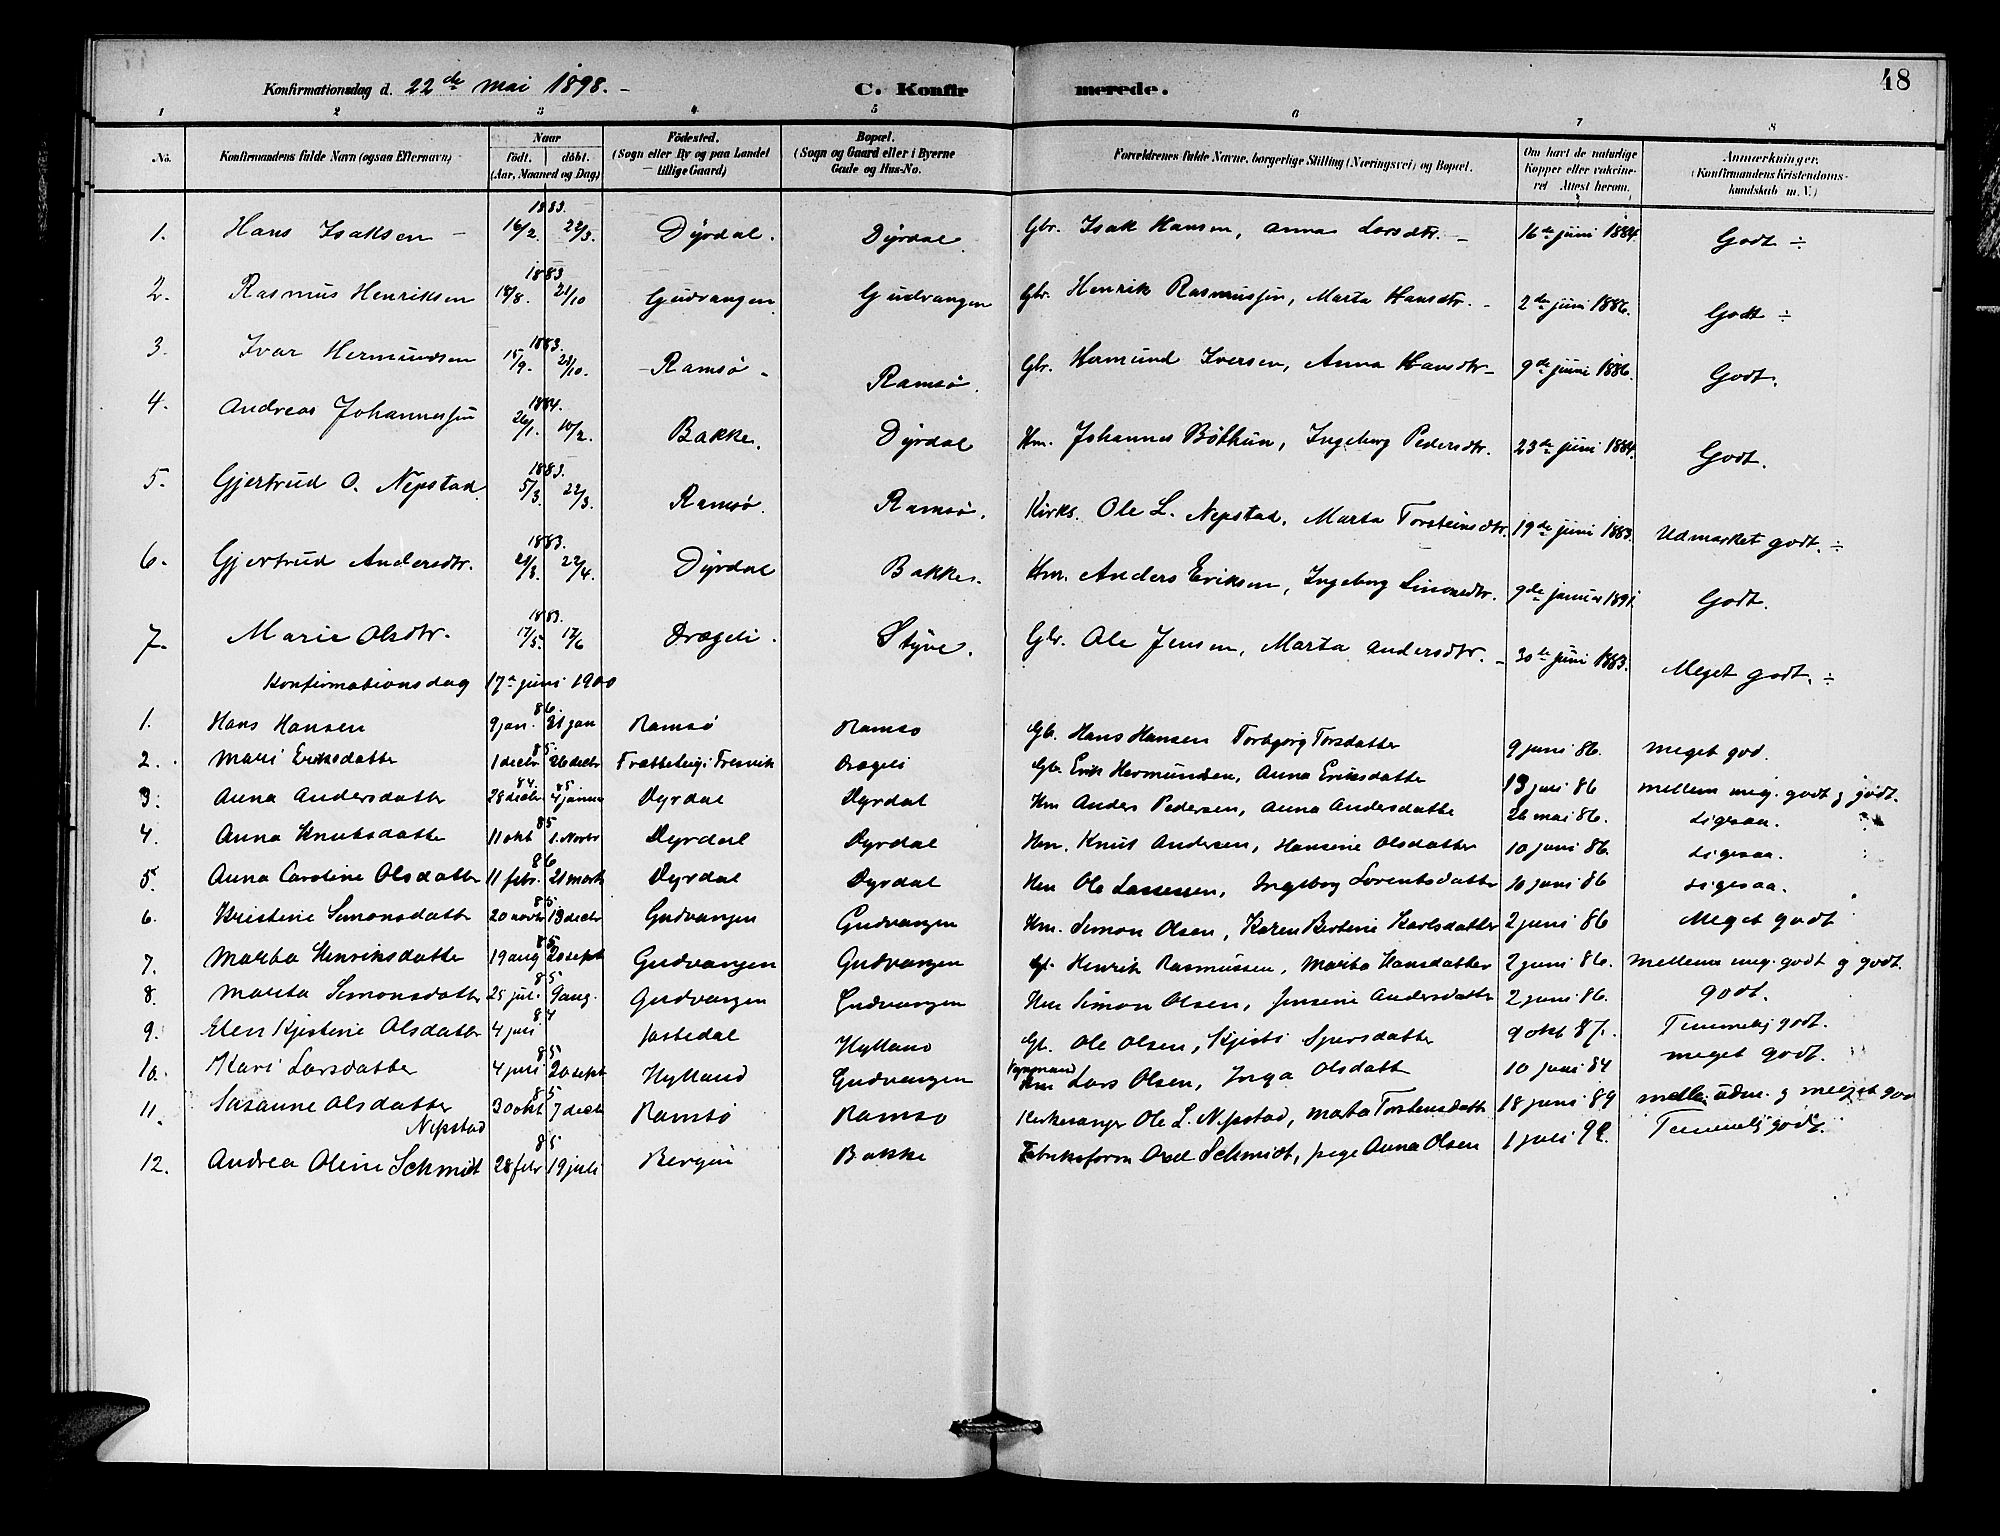 18
Konfirmationsdag d. 22de mai 1898. C. Konfirmerede.
1 2 3 4 5 6 7 8
No. Konfirmandens fulde Navn (ogsaa Efternavn) Naar födt. döbt. (Aar, Maaned og Dag) Födested. (Sogn eller By og paa Landet tillige Gaard) Bopæl. (Sogn og Gaard eller i Byerne Gade og Hus-No. Forældrenes fulde Navne, borgerlige Stilling (Næringsvei) og Bopæl. Om havt de naturlige Kopper eller vakcineret Attest herom. Anmærkninger. (Konfirmandens Kristendomskundskab m. V.)
1. Hans Isaksen 1883. 16/2. 22/3. Dyrdal. Dyrdal. Gbr. Isak Hansen, Anna Larsdtr. 16de juni 1884. Godt ÷
2. Rasmus Henriksen 1883 18/8. 21/10 Gudvangen Gudvangen Gbr. Henrik Rasmussen, Marta Hansdtr. 2de juni 1886. Godt ÷
3. Ivar Hermundsen 1883. 15/9. 21/10. Ramsø Ramsø. Gbr. Hermund Iversen, Anna Hansdtr 9de juni 1886. Godt.
4. Andreas Johannessen 1884. 26/1. 10/2. Bakke. Dyrdal Hm. Johannes Bøthun, Ingeborg Pedersdtr. 23de juni 1884. Godt.
5. Gjertrud O. Nepstad 1883. 5/3. 22/3. Ramsø. Ramsø. Kirks. Ole L. Nepstad, Marta Torsteinsdtr. 19de juni 1883. Udmærket godt. ÷
6. Gjertrud Andersdtr. 1883. 22/4. Dyrdal Bakke. Hm. Anders Eriksen, Ingeborg 9de januar 1891. Godt.
7. Marie Olsdtr. 1883. 17/5. 17/6 Drægeli. Styve. Gbr. Ole Jensen, Marta Andersdtr. 30te juni 1883. Meget godt. ÷
Konfirmationsdag 17a juni 1900
1. Hans Hansen 86. 9 jan. 21 jan Ramsø Ramsø Gb. Hans Hansen Torbjorg Torsdatter 9 juni 86. meget god.
2. Mari Eriksdatter 85. 1 decbr 26 decbr i Fresvik Drægeli Gb. Erik Hermundsen, Anna Eriksdatter 19 juni 86 mellem meg. godt g godt.
3. Anna Andersdatter 84. 28 decbr 85 4 januar Dyrdal Dyrdal Hm Anders Pedersen, Anna Andersdatter 26 mai 86. Ligesaa.
4. Anna Knutsdatter 85 11 okt 1. Novbr Dyrdal Dyrdal Hm. Knut Andersen, Hansine Olsdatter 10 juni 86. Ligesaa.
5. Anna Caroline Olsdatter 86 11 febr. 21 marts Dyrdal Dyrdal Hm Ole Lassesen, Ingebog Lorentsdatter 10 juni 86 Ligesaa.
6. Kristine Simonsdatter 85. 20 novbr 13 decbr Gudvangen Gudvangen Hm. Simon Olsen, Karen Bertine Karlsdatter 2 juni 86 Meget godt
7. Martha Henriksdatter 85 19 aug 20 sept Gudvangen Gudvangen Gb. Henrik Rasmussen, Marita Hansdatter 2 juni 86. mellem meg. godt g godt.
8. Marita Simonsdatter 85 25 jul. 9 aug. Gudvangen Gudvangen Hm Simon Olsen, Jensine Andersdatter 2 juni 86. godt.
9. Elen Kjistine Olsdatter 84 4 juni Jostedal Hylland Gb. Ole Olsen, Kjisti Sjursdatter 9 okt 87. Temmelig godt.
10. Kari Larsdatter 85 4 juni 20 sept Hylland Gudvangen Hm Lars Olsen, Inga Olsdatt 10 juni 84 meget godt.
11. Susanne Olsdatter Nepstad 85 30 okt 7 decbr Ramsø Ramsø Kirkesanger Ole L. Nepstad, Marta Torsteinsdatter 18 juni 89 mell. udm. g meeget god
12. Andrea Oline Schmidt 85 28 febr 19 juli Bergen Bakke Fabriksform Axel Schmidt, pige Anna Olsen 1 juli 92. Temmelig godt.